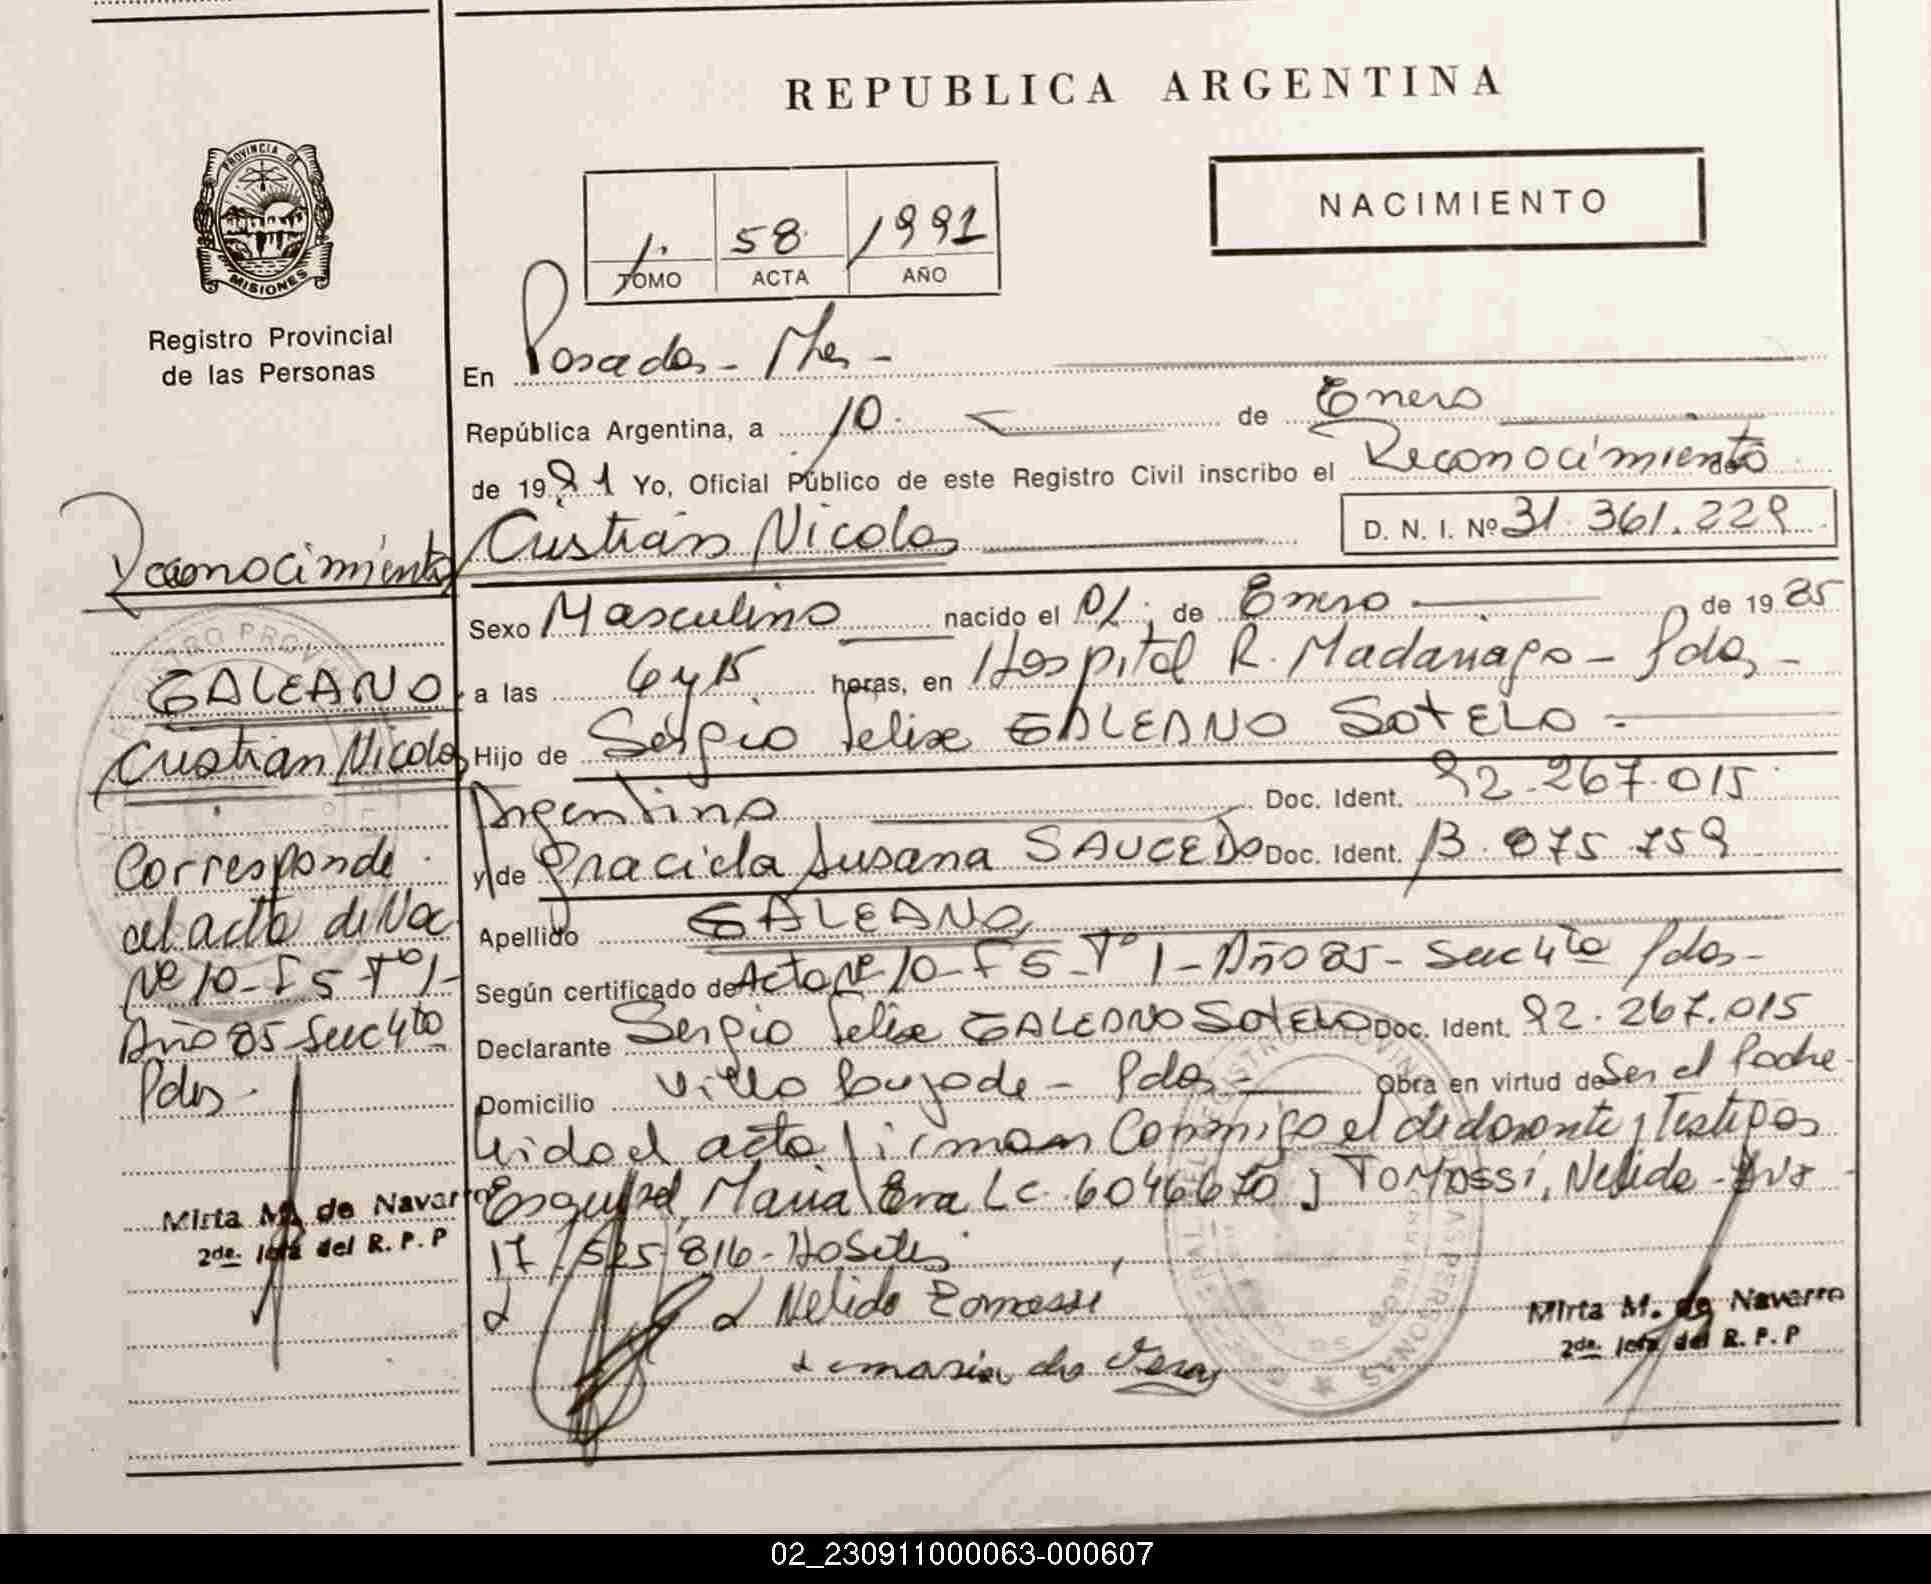 REPUBLICA ARGENTINA
NACIMIENTO
1. 58 1991
TOMO ACTA AÑO
PROVINCIA DE
MISIONES
Registro Provincial
de las Personas
En Posadas - Mnes -
República Argentina, a 10. de Enero
de 1991 Yo, Oficial Público de este Registro Civil inscribo el Reconocimiento de
Cristian Nicolas D. N. I. Nº 31.361.229
Sexo Masculino nacido el 01. de Enero de 1985
a las 6 y 15 horas, en Hospital R. Madariaga - Pdas -
Hijo de Sergio Felix GALEANO SOTELO -
Argentino Doc. Ident. 92.267.015
y de Graciela Susana SAUCEDO Doc. Ident. 13.075.759
Apellido GALEANO
Según certificado de Acta Nº 10 - F 5 - Tº 1 - Año 85 - Secc 4ta Pdas -
Declarante Sergio Felix GALEANO SOTELO Doc. Ident. 92.267.015
Domicilio Villa - Pdas - Obra en virtud de Ser el Padre
Leida el acta firman Conmigo el declarante y Testigos
Esquivel, Maria Eva Lc. 6046670 y TOMASSI, Nelida -
17.525.816 -
Nelida Tomassi
maria
Mirta M. de Navarro
2da. Jefa del R. P. P
Reconocimiento
GALEANO
Cristian Nicolas
Corresponde
al acta de Nac
Nº 10 - F 5 Tº 1 -
Año 85 Secc 4ta
Pdas -
Mirta M. de Navarro
2da. Jefa del R. P. P
02_230911000063-000607